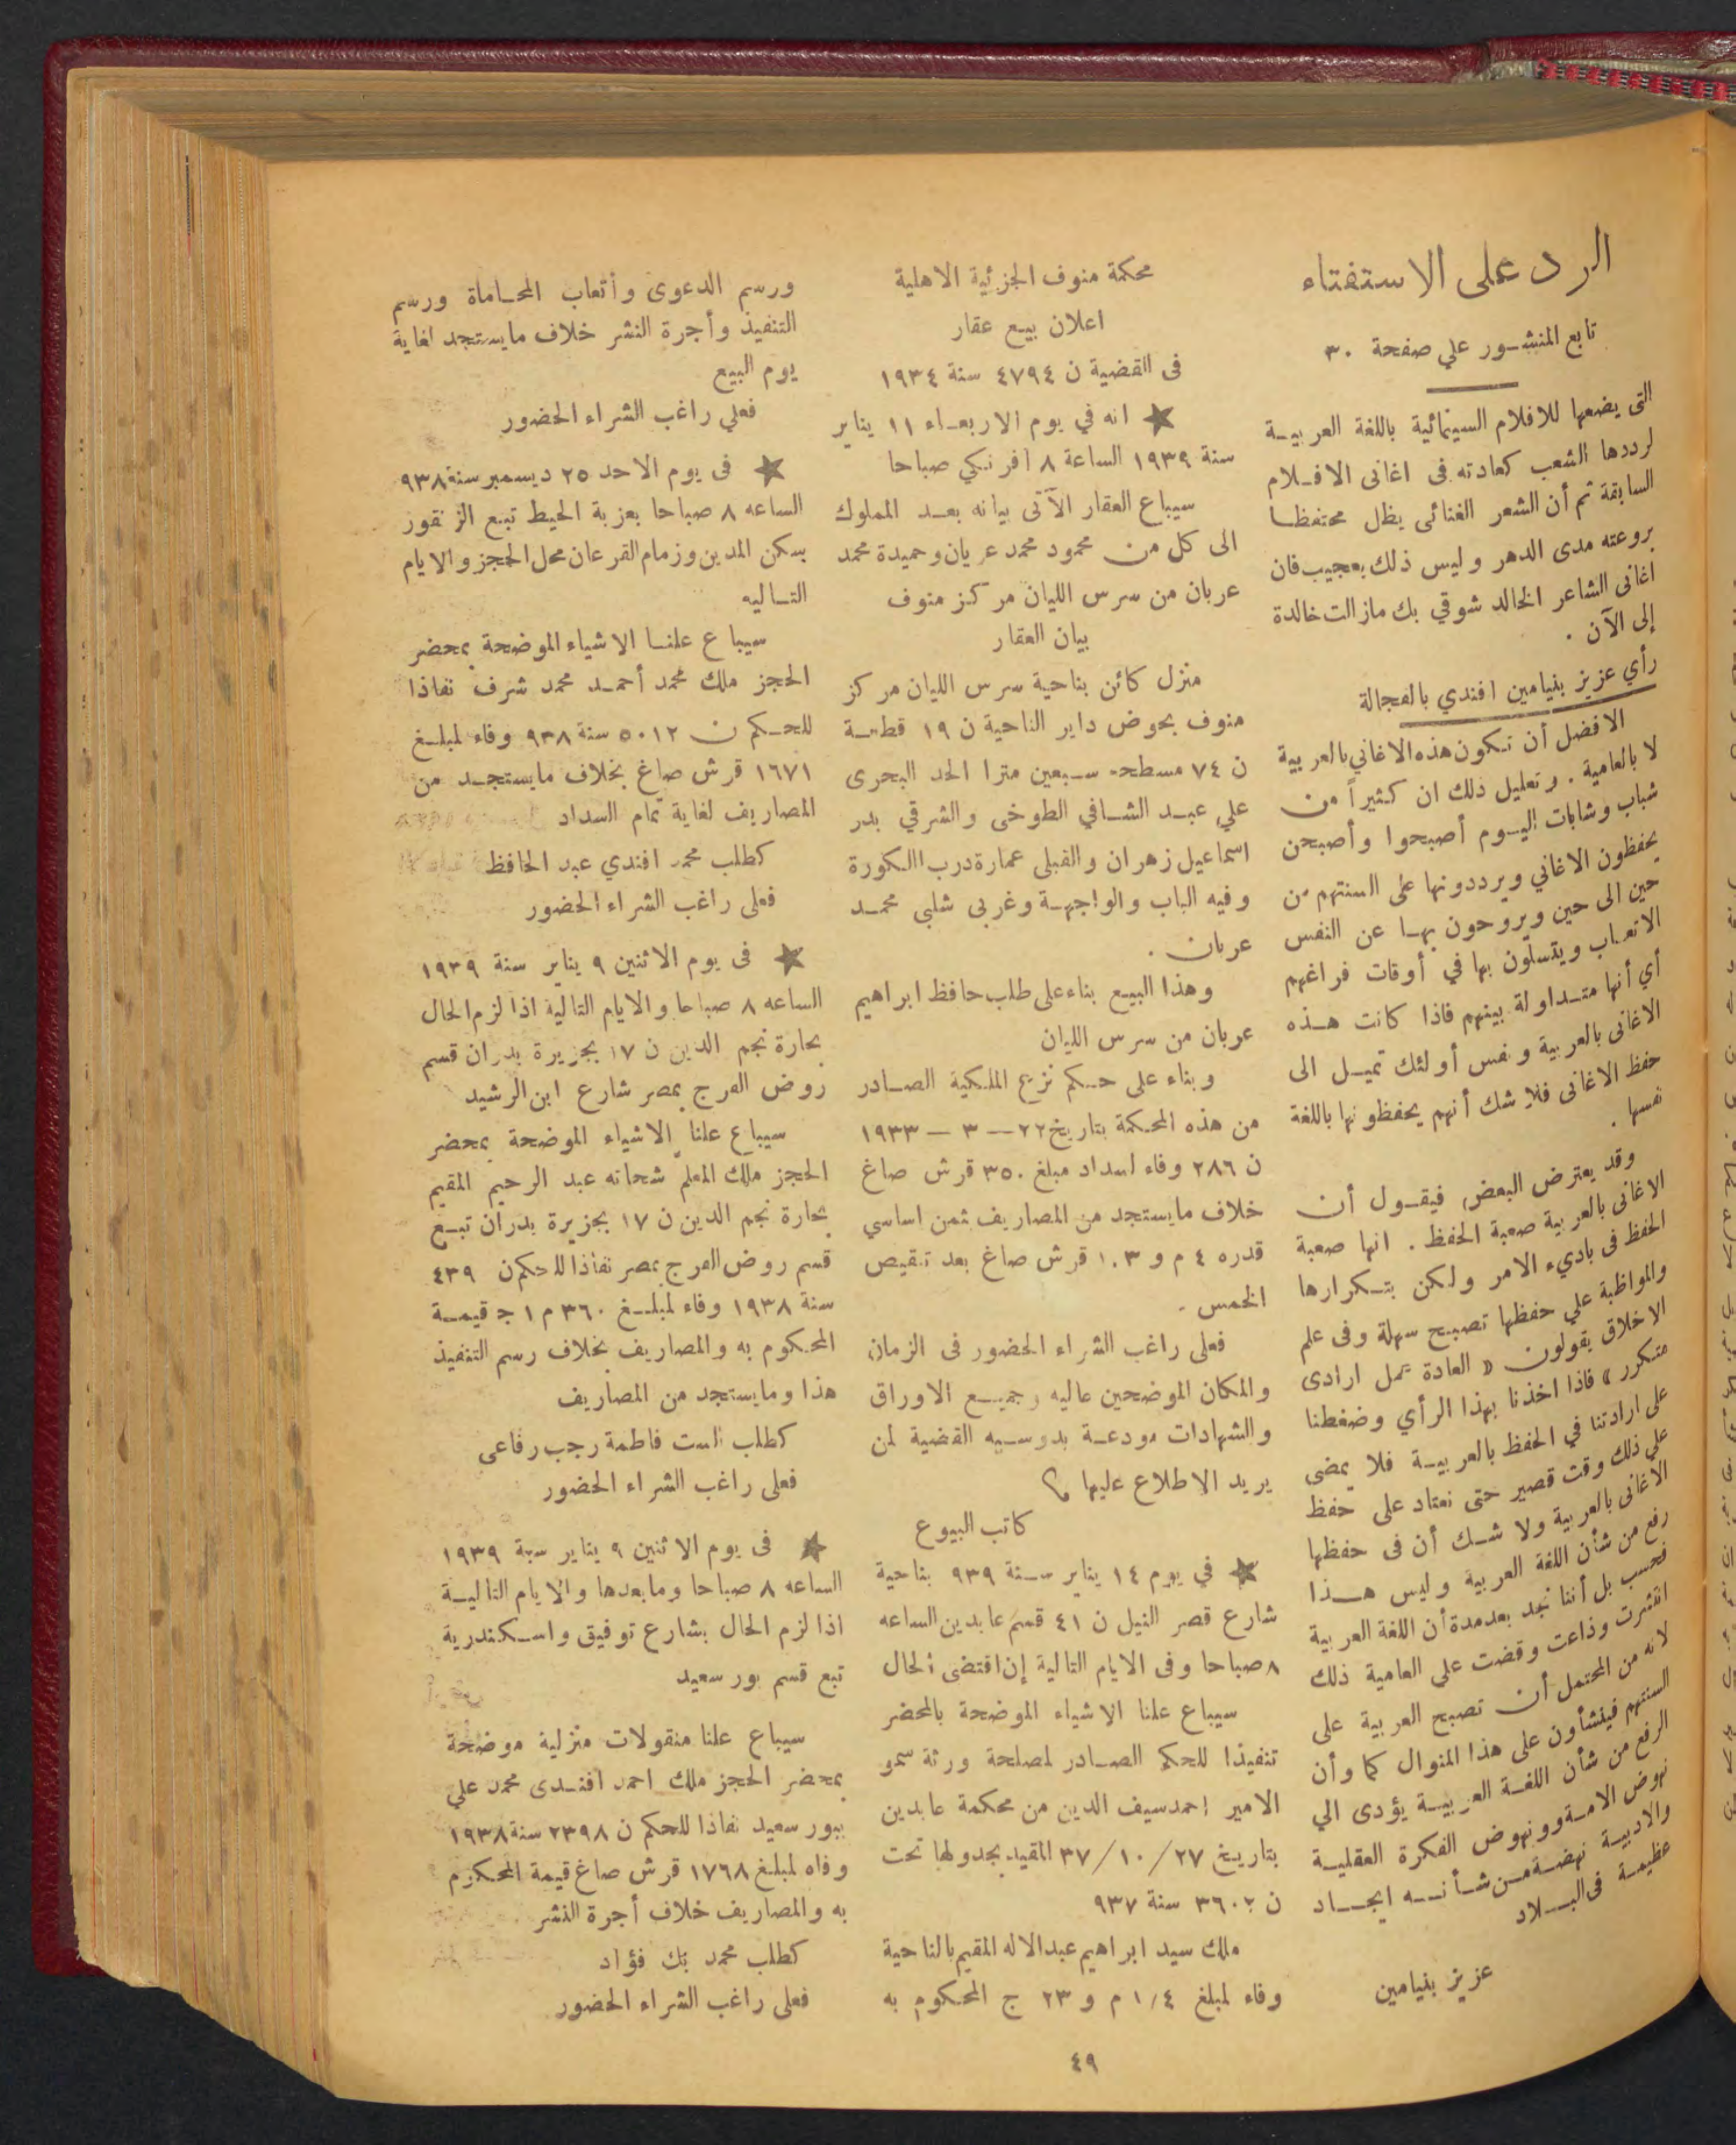 الرد على الاستفتاء
تابع المنشور علي صفحة ٣٠
التى يضعها للافلام السينمائية باللغة العربية
لرددها الشعب كعادته فى اغانى الافلام
السابقة ثم أن الشعر الغنائى يظل محتفظا
بروعته مدى الدهر وليس ذلك بعجيب فان
اغانى الشاعر الخالد شوقي بك مازالت خالدة
إلى الآن .
رأي عزيز بنيامين افندي بالفجالة
الافضل أن تكون هذه الاغاني بالعربية
لا بالعامية . وتعليل ذلك ان كثيراً من
شباب وشابات اليوم أصبحوا وأصبحن
يحفظون الاغاني ويرددونها على السنتهم من
حين الى حين ويروحون بها عن النفس
الاتعاب ويتسلون بها في أوقات فراغهم
أي أنها متداولة بينهم فاذا كانت هذه
الاغانى بالعربية ونفس أولئك تميل الى
حفظ الاغانى فلا شك أنهم يحفظونها باللغة
نفسها .
وقد يعترض البعض فيقول أن
الاغانى بالعربية صعبة الحفظ . انها صعبة
الحفظ فى باديء الامر ولكن بتكرارها
والمواظبة علي حفظها تصبح سهلة وفى علم
الاخلاق يقولون « العادة عمل ارادى
متكرر » فاذا اخذنا بهذا الرأي وضغطنا
على ارادتنا في الحفظ بالعربية فلا يمضى
علي ذلك وقت قصير حتى نعتاد على حفظ
الاغانى بالعربية ولا شك أن فى حفظها
رفع من شأن اللغة العربية وليس هذا
فحسب بل أننا نجد بعد مدة أن اللغة العربية
انتشرت وذاعت وقضت علي العامية ذلك
لانه من المحتمل أن تصبح العربية على
السنتهم فينشأون على هذا المنوال كما وأن
الرفع من شأن اللغة العربية يؤدى الي
نهوض الامة وونهوض الفكرة العقلية
والادبية نهضة من شأنه ايجاد
عظيمة فى البلاد
عزيز بنيامين
محكمة منوف الجزئية الاهلية
اعلان بيع عقار
فى القضية ن ٤٧٩٤ سنة ١٩٣٤
★ انه في يوم الاربعاء ١١ يناير
سنة ١٩٣٩ الساعة ٨ افرنكي صباحا
سيباع العقار الآتى بيانه بعد المملوك
الى كل من محمود محمد عريان وحميدة محمد
عربان من سرس الليان مركز منوف
بيان العقار
منزل كائن بناحية سرس الليان مركز
منوف بحوض داير الناحية ن ١٩ قطعة
ن ٧٤ مسطحه سبعين مترا الحد البحرى
علي عبد الشافي الطوخى والشرقي بدر
اسماعيل زهران والقبلى عمارة درب الكورة
وفيه الباب والواجهة وغربى شلبي محمد
عربان .
وهذا البيع بناء على طلب حافظ ابراهيم
عربان من سرس الليان
وبناء على حكم نزع الملكية الصادر
من هذه المحكمة بتاريخ ٢٢ — ٣ — ١٩٣٣
ن ٢٨٦ وفاء لسداد مبلغ ٣٥٠ قرش صاغ
خلاف مايستجد من المصاريف بثمن اساسي
قدره ٤ م و ١٠٣ قرش صاغ بعد تنقيص
الخمس .
فعلى راغب الشراء الحضور فى الزمان
والمكان الموضحين عاليه وجميع الاوراق
والشهادات مودعة بدوسيه القضية لمن
يريد الاطلاع عليها ؟
كاتب البيوع
★ في يوم ١٤ يناير سنة ٩٣٩ بناحية
شارع قصر النيل ن ٤١ قسم عابدين الساعه
٨ صباحا وفى الايام التالية إن اقتضى الحال
سيباع علنا الاشياء الموضحة بالمحضر
تنفيذا للحكم الصادر لمصلحة ورثة سمو
الامير احمد سيف الدين من محكمة عابدين
بتاريخ ٢٧ / ١٠ / ٣٧ المقيد بجدولها تحت
ن ٣٦٠٢ سنة ٩٣٧
ملك سيد ابراهيم عبد الاله المقيم بالناحية
وفاء لمبلغ ١/٤ م و ٢٣ ج المحكوم به
ورسم الدعوى وأتعاب المحاماة ورسم
التنفيذ وأجرة النشر خلاف مايستجد لغاية
يوم البيع
فعلي راغب الشراء الحضور
★ فى يوم الاحد ٢٥ ديسمبر سنة ٩٣٨
الساعه ٨ صباحا بعزبة الحيط تبع الزنقور
بسكن المدين وزمام القرعان محل الحجز والايام
التاليه
سيباع علنا الاشياء الموضحة بمحضر
الحجز ملك محمد أحمد محمد شرف نفاذا
للحكم ن ٥٠١٢ سنة ٩٣٨ وفاء لمبلغ
١٦٧١ قرش صاغ بخلاف مايستجد من
المصاريف لغاية تمام السداد
كطلب محمد افندي عبد الحافظ
فعلى راغب الشراء الحضور
★ فى يوم الاثنين ٩ يناير سنة ١٩٣٩
الساعه ٨ صباحا والايام التالية اذا لزم الحال
بحارة نجم الدين ن ١٧ بجزيرة بدران قسم
روض الفرج بمصر شارع ابن الرشيد
سيباع علنا الاشياء الموضحة بمحضر
الحجز ملك المعلم شحاته عبد الرحيم المقيم
بحارة نجم الدين ن ١٧ بجزيرة بدران تبع
قسم روض الفرج بمصر نفاذا للحكم ن ٤٣٩
سنة ١٩٣٨ وفاء لمبلغ ٣٦٠ م ١ ج قيمة
المحكوم به والمصاريف بخلاف رسم التنفيذ
هذا ومايستجد من المصاريف
كطلب الست فاطمة رجب رفاعى
فعلى راغب الشراء الحضور
★ فى يوم الاثنين ٩ يناير سنة ١٩٣٩
الساعه ٨ صباحا ومابعدها والايام التالية
اذا لزم الحال بشارع توفيق واسكندرية
تبع قسم بور سعيد
سيباع علنا منقولات منزلية موضحة
بمحضر الحجز ملك احمد افندى محمد علي
ببور سعيد نفاذا للحكم ن ٢٣٩٨ سنة ١٩٣٨
وفاه لمبلغ ١٧٦٨ قرش صاغ قيمة المحكوم
به والمصاريف خلاف أجرة النشر
كطلب محمد بك فؤاد
فعلى راغب الشراء الحضور
٤٩